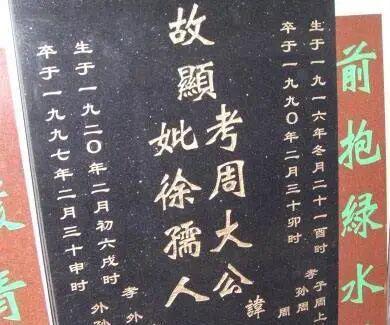 前抱綠水
生于一九一六年冬月二十一酉时
卒于一九九〇年二月三十卯时
孝子周上
孙周
周
故顯
考周大公
諱
妣徐孺人
生于一九二〇年二月初六戌时
卒于一九九七年二月三十申时
孝外
外孙